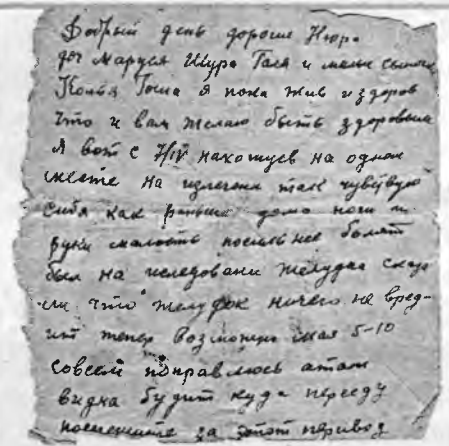 Добрый день дорогие Нюра
доч Маруся Шура Галя и малые сыночк
Колья Гоша я пока жив и здоров
что и вам желаю быть здоровыма
Я вот с 7/IV нахожусь на одном
месте на излечени так чувствую
себя как раньше дома ноги и
руки малость посильнее болят
был на иследовани желудка сказа
ли что желудок ничего не вред-
ит тепер возможно мая 5-10
совсем поправлюсь атам
видна будит куда перееду
за этот перевод